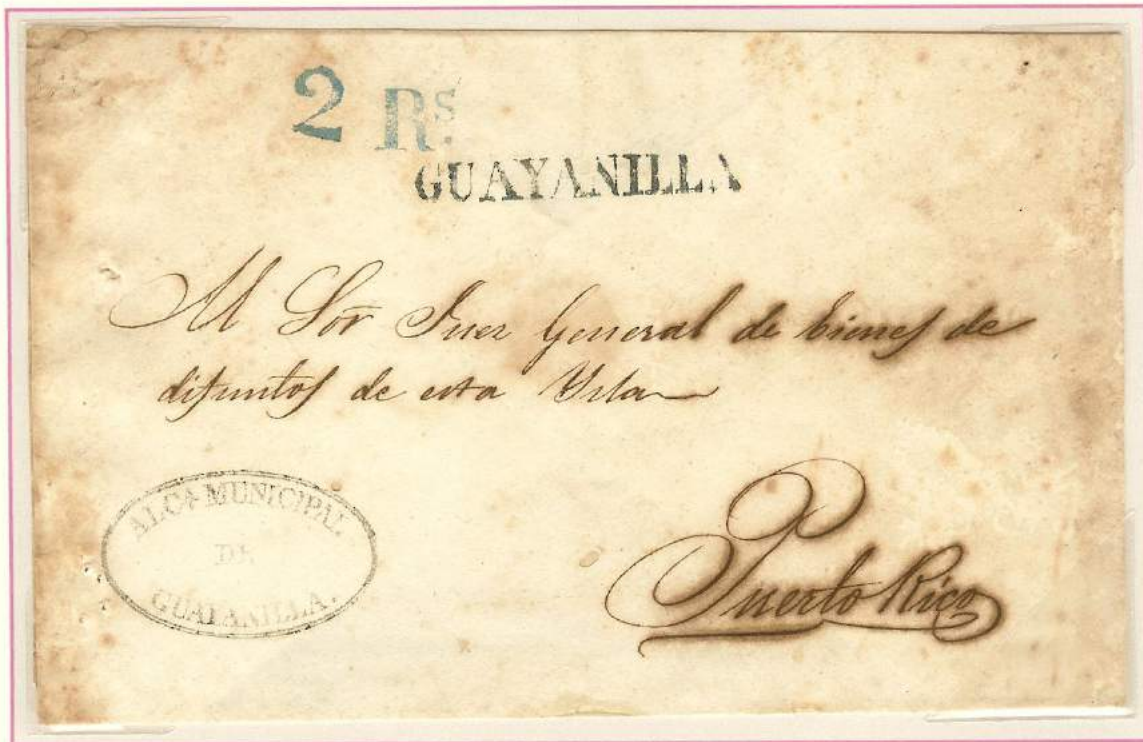 2 Rs.
GUAYANILLA
Al Sor Juez General de bienes de
difuntos de esta Ysla
ALCA. MUNICIPAL
DE
GUAYANILLA.
Puerto Rico